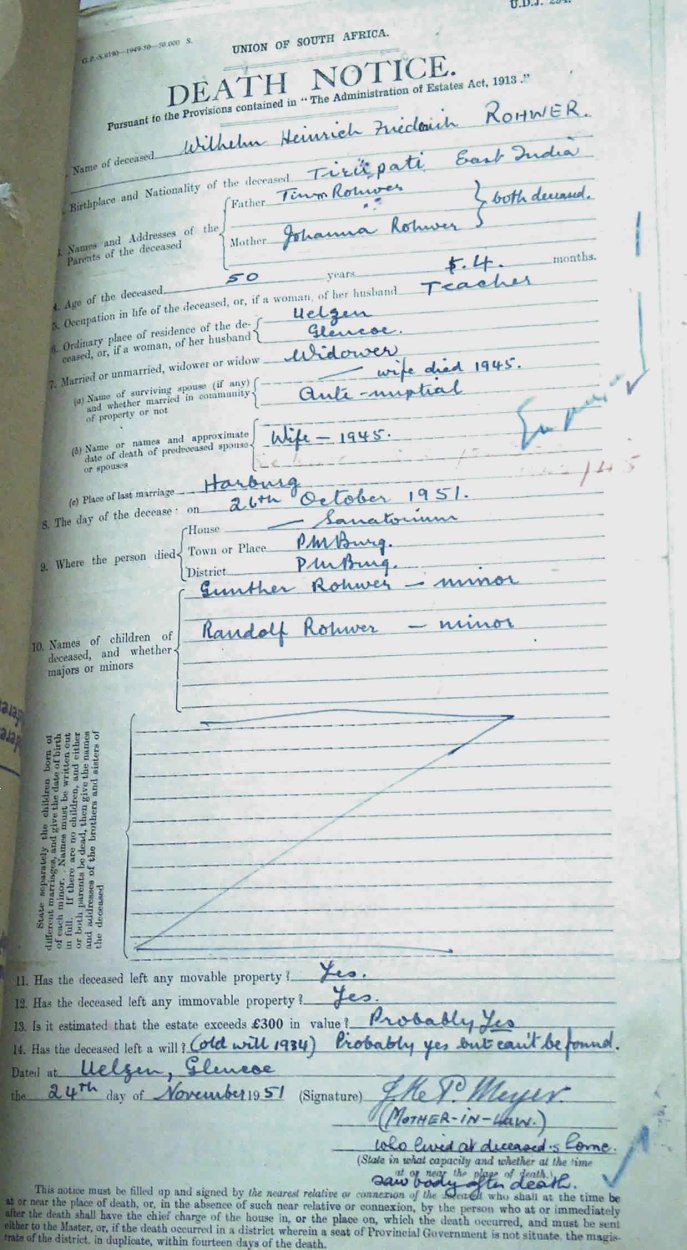 U.D.J.
G.P.-S.6190—1949-50—50,000 S.
UNION OF SOUTH AFRICA.
DEATH NOTICE.
Pursuant to the Provisions contained in "The Administration of Estates Act, 1913."
Name of deceased Wilhelm Heinrich Friedrich ROHWER.
Birthplace and Nationality of the deceased Tirupati East India
3. Names and Addresses of the Parents of the deceased
Father Timm Rohwer
Mother Johanna Rohwer
both deceased.
4. Age of the deceased 50 years 4. months.
5. Occupation in life of the deceased, or, if a woman, of her husband Teacher
6. Ordinary place of residence of the de-
ceased, or, if a woman, of her husband
Uelzen
Glencoe.
7. Married or unmarried, widower or widow Widower
(a) Name of surviving spouse (if any)
and whether married in community
of property or not
— wife died 1945.
Ante-nuptial
(b) Name or names and approximate
date of death of predeceased spouse
or spouses
Wife — 1945.
(c) Place of last marriage Harburg
8. The day of the decease: on 26th October 1951.
9. Where the person died
House — Sanatorium
Town or Place PMBurg.
District PMBurg.
10. Names of children of
deceased, and whether
majors or minors
Gunther Rohwer — minor
Randolf Rohwer — minor
State separately the children born of
different marriages, and give the date of birth
of each minor. Names must be written out
in full. If there are no children, and either
or both parents be dead, then give the names
and addresses of the brothers and sisters of
the deceased
11. Has the deceased left any movable property? Yes.
12. Has the deceased left any immovable property? Yes.
13. Is it estimated that the estate exceeds £300 in value? Probably Yes
14. Has the deceased left a will? (old will 1934) Probably yes but can't be found.
Dated at Uelzen, Glencoe
the 24th day of November 1951 (Signature) Meyer.
(MOTHER-IN-LAW.)
who lived at deceased's home.
(State in what capacity and whether at the time
at or near the place of death.)
saw body after death.
This notice must be filled up and signed by the nearest relative or connexion of the deceased who shall at the time be
at or near the place of death, or, in the absence of such near relative or connexion, by the person who at or immediately
after the death shall have the chief charge of the house in, or the place on, which the death occurred, and must be sent
either to the Master, or, if the death occurred in a district wherein a seat of Provincial Government is not situate, the magis-
trate of the district, in duplicate, within fourteen days of the death.